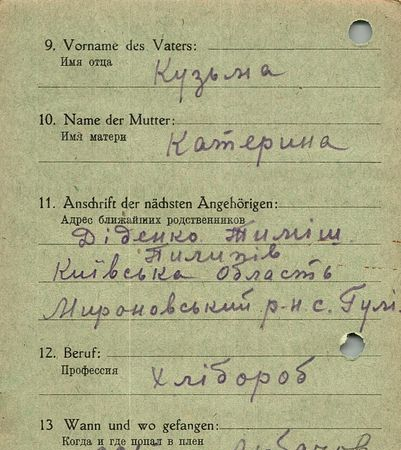 9. Vorname des Vaters:
Имя отца
Кузьма
10. Name der Mutter:
Имя матери
Катерина
11. Anschrift der nächsten Angehörigen:
Адрес ближайших родственников
Діденко Тиміш
Пилипів
Київська область
Мироновський р-н с. Гулі
12. Beruf:
Профессия
Хлібороб
13 Wann und wo gefangen:
Когда и где попал в плен